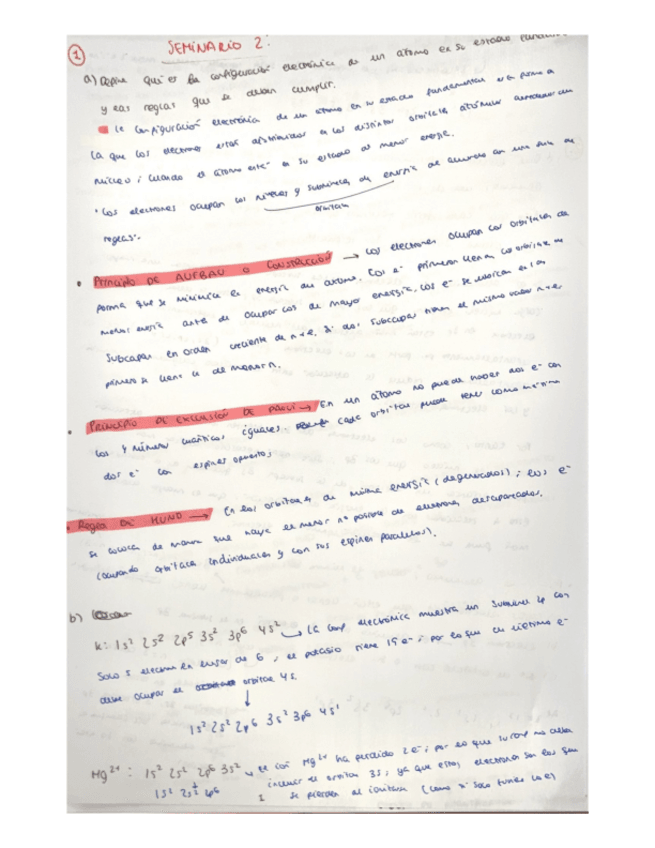 ① SEMINARIO 2:
a) Define qué es la configuración electrónica de un átomo en su estado fundamental
y las reglas que se deben cumplir.
La configuración electrónica de un átomo en su estado fundamental es la forma a
la que los electrones están distribuidos en los distintos orbitales atómicos alrededor del
núcleo, cuando el átomo esté en su estado de menor energía.
· Los electrones ocupan los niveles y subniveles de energía de acuerdo con una serie de
orbitales
reglas:
• Principio DE AUFBAU O CONSTRUCCIÓN → Los electrones ocupan los orbitales de
forma que se minimice la energía del átomo. Los e⁻ primero llenan los orbitales de
menor energía antes de ocupar los de mayor energía. Los e⁻ se ubican en las
subcapas en orden creciente de n+l. Si dos subcapas tienen el mismo valor n+l
primero se llena la de menor n.
• PRINCIPIO DE EXCLUSIÓN DE PAULI → En un átomo no puede haber dos e⁻ con
los 4 números cuánticos iguales cada orbital puede tener como máximo
dos e⁻ con espines opuestos
• Regla DE HUND → En los orbitales de misma energía (degenerados), los e⁻
se colocan de manera que haya el menor nº posible de electrones desapareados.
(ocupando orbitales individuales y con sus espines paralelos).
b)
K: 1s² 2s² 2p⁵ 3s² 3p⁶ 4s² → La conf electrónica muestra un subnivel 2p con
Solo 5 electrones en lugar de 6, el potasio tiene 19 e⁻, por lo que el último e⁻
debe ocupar el orbital 4s.
1s² 2s² 2p⁶ 3s² 3p⁶ 4s¹
Mg²⁺: 1s² 2s² 2p⁶ 3s² → el ión Mg²⁺ ha perdido 2e⁻, por lo que no debe
incluir el orbital 3s, ya que estos electrones son los que
1s² 2s² 2p⁶ se pierden al ionizarse